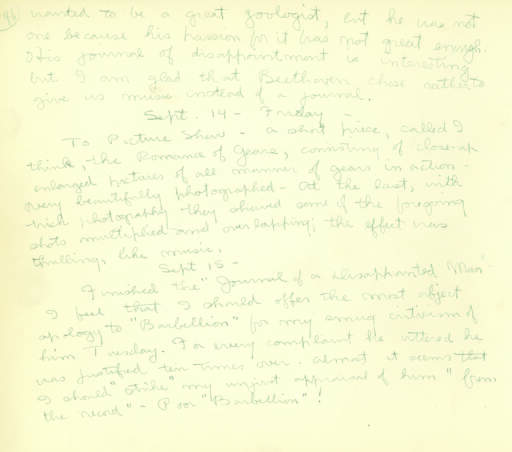 wanted to be a great zoologist, but he was not
one because his passion for it was not great enough.
His journal of disappointment is interesting
but I am glad that Beethoven chose rather to
give us music instead of a journal.
Sept. 14 - Friday -
To Picture Show - a short piece, called I
think, the Romance of Gears, consisting of close-up
enlarged pictures of all manner of gears in action -
very beautifully photographed - At the last, with
trick photography they showed some of the foregoing
shots multiplied and overlapping; the effect was
thrilling, like music.
Sept. 15 -
Finished the "Journal of a disappointed Man"
I feel that I should offer the most abject
apology to "Barbellion" for my smug criticism of
him Tuesday. For every complaint he uttered he
was justified ten times over. Almost it seems that
I should "strike" my unjust appraisal of him "from
the record" - Poor "Barbellion"!